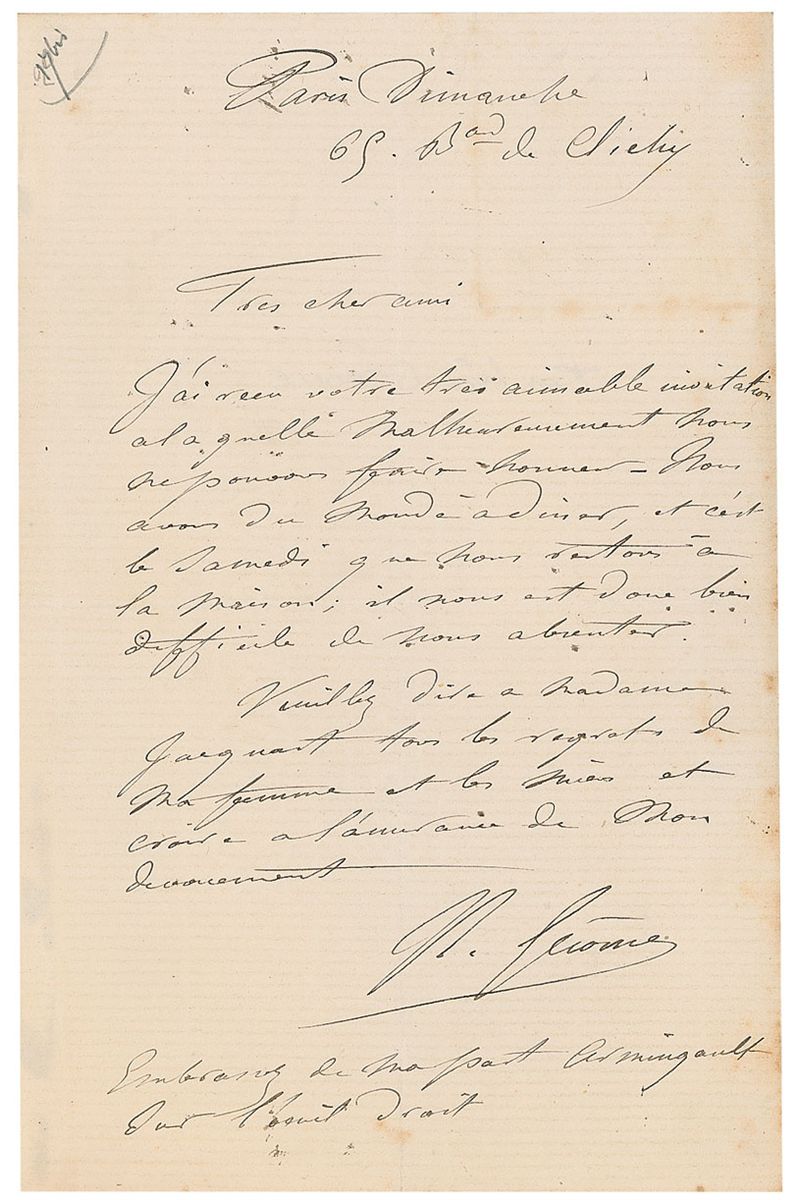 Paris Dimanche
65. Bard de Clichy
Tres cher ami
J'ai recu votre très aimable invitation
a la quelle Malheureusement nous
ne pouvons faire honneur - Nous
avons du Monde à diner, et c'est
le Samedi que nous restons à
la Maison; il nous est donc bien
difficile de nous absenter.
Veuillez dire a Madame
Jacquart tous les regrets de
Ma femme et les Miens et
croire a l'assurance de Mon
devouement
Gérome
Embrassez de Ma part Armingault
Sur l'oeil droit